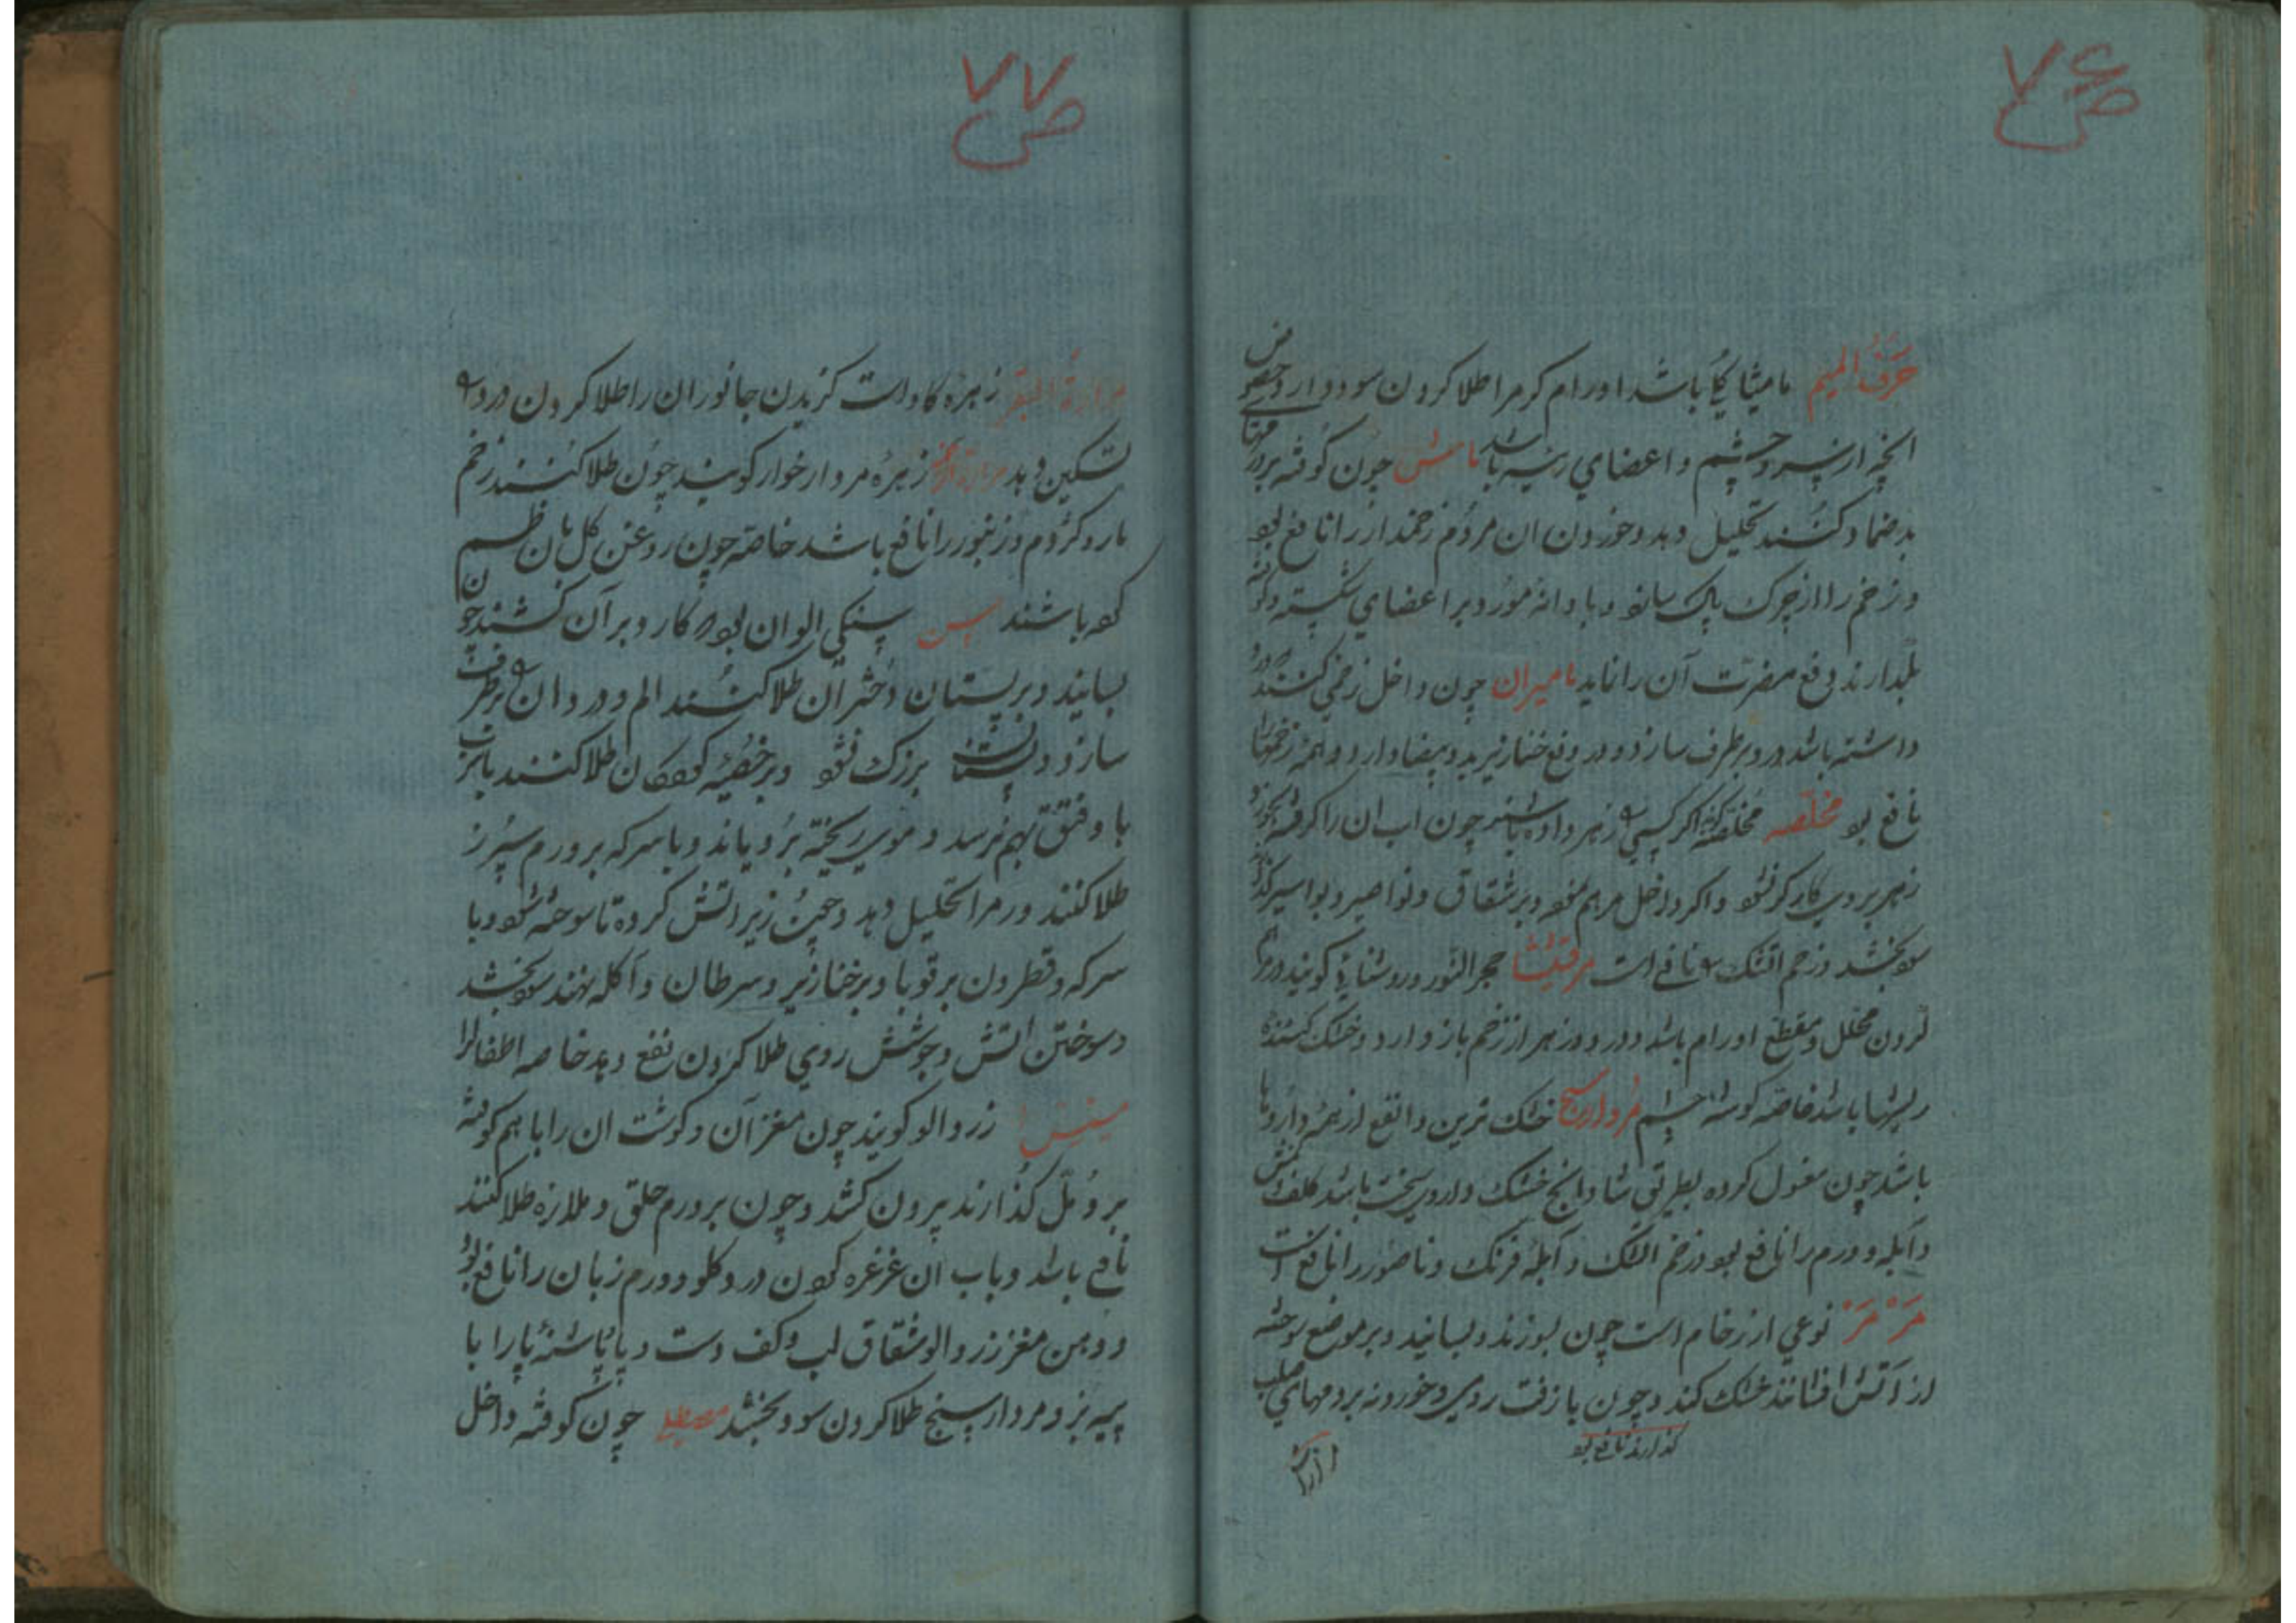 ص ۷۶
حَرفُ المیم مامیثا گیاهی باشد اورام کرم را طلا کردن سود دارد خصوص
انچه از سر و چشم و اعضای رئیسه باشد ماش چون کوفته بر ورمهای
بد ضماد کنند تحلیل دهد و خوردن ان مردم زخمدار را نافع بود
و زخم را از چرک پاک سازد و با دانه مورد بر اعضای شکسته و کوفته
بگذارند دفع مضرت آن را نماید مامیران چون داخل زخمی کنند که درد
داشته باشد درد بر طرف سازد و در دفع خنازیر ید و بیضا دارد و همه زخمها
نافع بود مخلصه مخلصه اکر کسی را زهر داده باشند چون اب ان را کرفته بخورد
زهر بر وی کارکر نشود و اکر داخل مرهم نمود و بر شقاق و نواصیر و بواسیر
سود بخشد و زخم اتشک را نافع است مرقشیشا حجر النور و روشنایی کویند
کردن محلل و مقطع اورام باشد و درد و زهر از زخم باز دارد و خشک کننده
ریشها باشد خاصه کوشه چشم مرداسنج خشک ترین و انفع از همه داروها
باشد چون مغسول کرده بطریق شادانج خشک و داروی سخت باشد کلف و نمش
و آبله و ورم را نافع بود و زخم اتشک و آبله فرنک و ناصور را نافع است
مَرمَر نوعی از رخام است چون بسوزند و بسایند و بر موضع سوخته
از آتش افشانند خشک کند و چون با زفت رومی و خورده بر ورمهای صلب
کذارند نافع بود
ص ۷۷
مرارة البقر زهره کاو است کزیدن جانوران را طلا کردن درد را
تسکین دهد زهره مردارخوار کویند چون طلا کنند زخم
مار و کژدم و زنبور را نافع باشد خاصه چون روغن کل بان ضم
کرده باشند مسن سنکی الوان بود که کارد بر آن کشند چون
بسایند و بر پستان دختران طلا کنند الم و درد ان را بر طرف
سازد و پستان بزرک نشود و بر خصیه کودکان طلا کنند
باد فتق بهم نرسد و موی ریخته برویاند و با سرکه بر ورم سپرز
طلا کنند ورم را تحلیل دهد و چون زیر اتش کرده تا سوخته شود و با
سرکه و قطرون بر قوبا و بر خنازیر و سرطان و آکله نهند سود بخشد
و سوختن اتش و جوشش روی طلا کردن نفع دهد خاصه اطفال را
مشمش زردالو کویند چون مغز آن و کوشت ان را با هم کوفته
بر دُمّل کذارند بیرون کشد و چون بر ورم حلق و ملازه طلا کنند
نافع باشد و باب ان غرغره کردن درد کلو و ورم زبان را نافع بود
و دهن مغز زردالو شقاق لب و کف دست و پا و پاشنه پا را با
پیه بز و مردارسنج طلا کردن سود بخشد مصطکی چون کوفته داخل